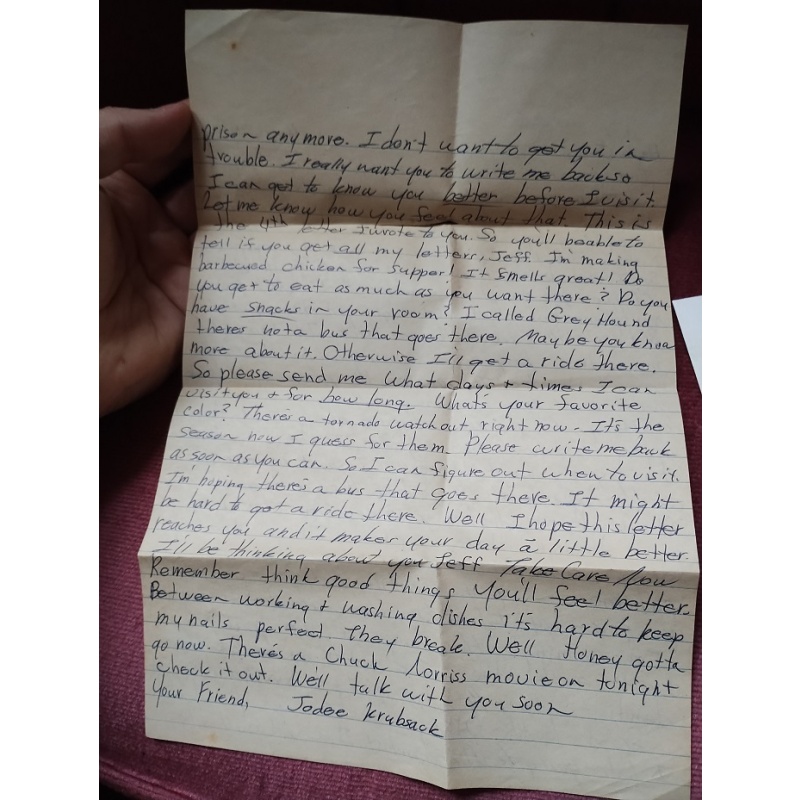 prison anymore. I don't want to get you in
trouble. I really want you to write me back so
I can get to know you better before I visit.
Let me know how you feel about that. This is
the 4th letter I wrote to you. So you'll beable to
tell if you get all my letters, Jeff. I'm making
barbecued chicken for supper! It smells great! Do
you get to eat as much as you want there? Do you
have snacks in your room? I called Grey Hound
theres not a bus that goes there. Maybe you know
more about it. Otherwise I'll get a ride there.
So please send me what days + times I can
visit you + for how long. What's your favorite
color? There's a tornado watch out right now. It's the
season now I guess for them. Please write me back
as soon as you can. So I can figure out when to visit.
I'm hoping there's a bus that goes there. It might
be hard to get a ride there. Well I hope this letter
reaches you and it makes your day a little better.
I'll be thinking about you Jeff Take Care Now
Remember think good things you'll feel better.
Between working + washing dishes it's hard to keep
my nails perfect they break. Well Honey gotta
go now. There's a Chuck Norriss movie on tonight
check it out. We'll talk with you soon
Your Friend, Jodee Krubsack